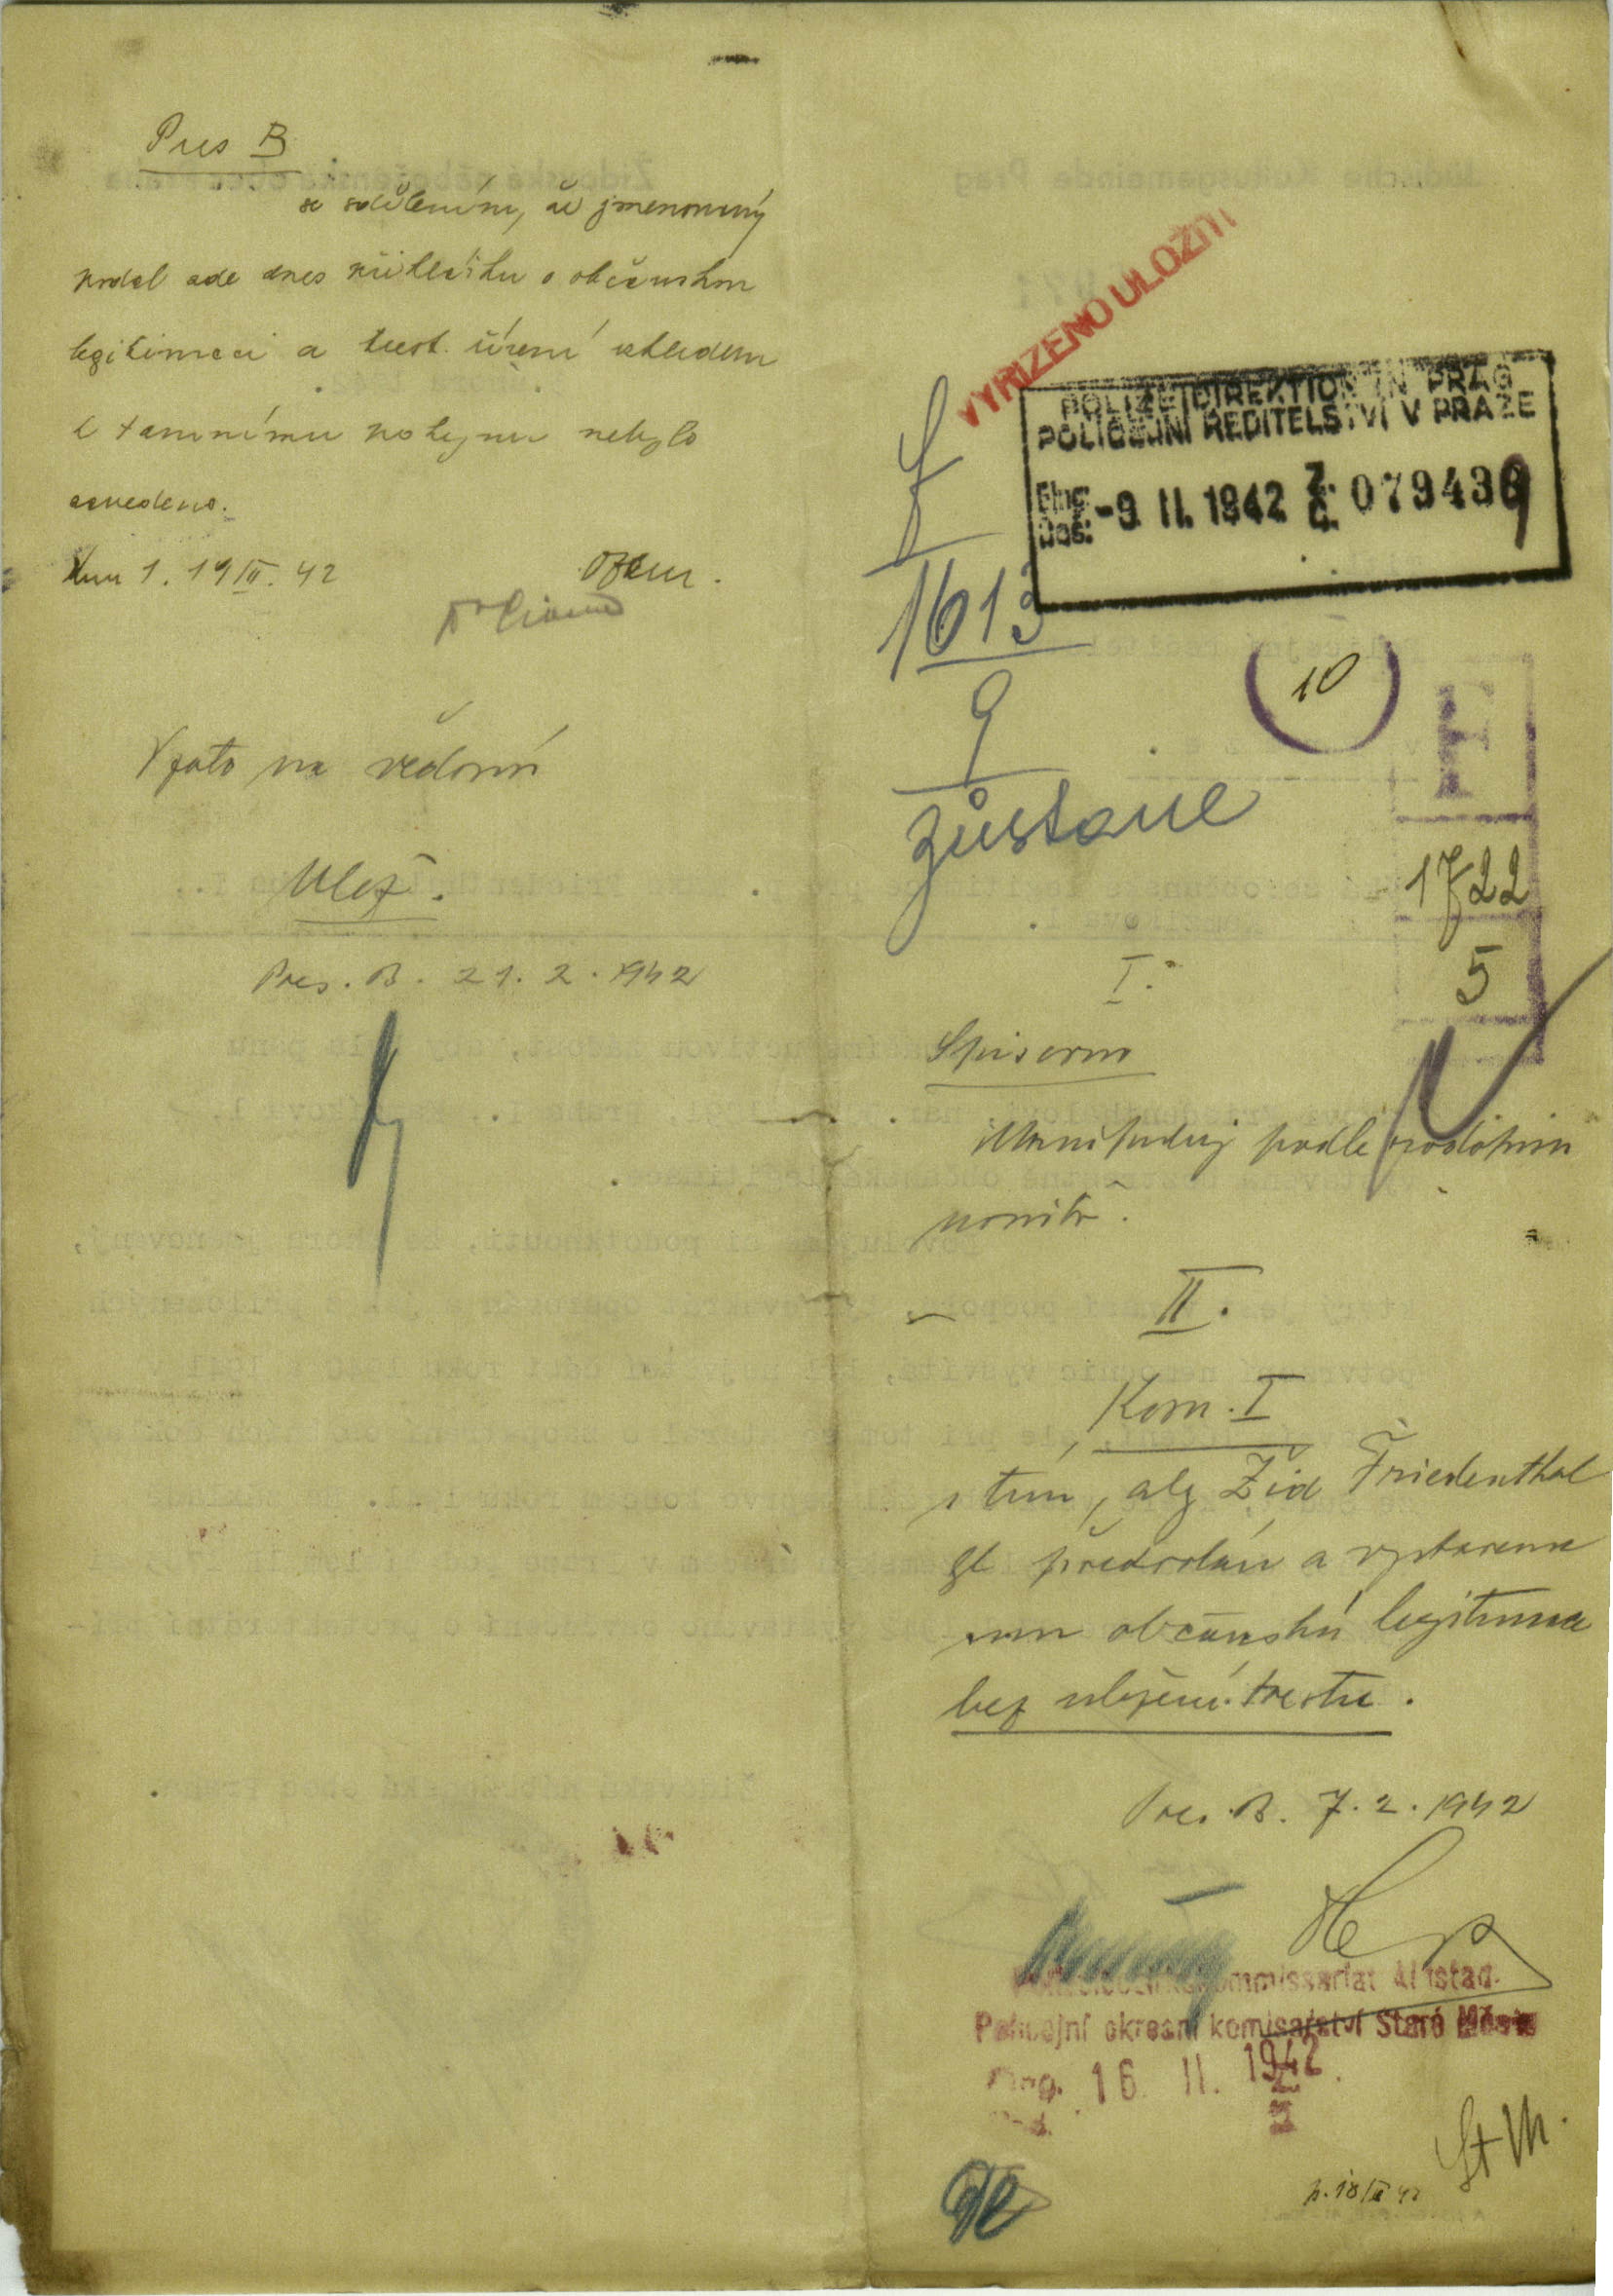 Pres B
se sdělením, že jmenovaný
podal zde dnes přihlášku o občanskou
legitimaci a trest. řízení vzhledem
k tamnímu pokynu nebylo
zavedeno.
Kom 1. 19/II. 42
Vzato na vědomí
Ulož.
Pres. B. 21. 2. 1942
VYŘÍZENO ULOŽIT
POLIZEIDIREKTION IN PRAG
POLICEJNÍ ŘEDITELSTVÍ V PRAZE
Eing.
Doš.
-9. II. 1942
Z.
Č.
079439
F
1613
9
zůstane
10
F
1722
5
I.
Spisovna
Manipuluj podle
uvnitř.
II.
Kom. I
s tím, aby Žid Friedenthal
byl předvolán a vystavena
mu občanská legitimace
bez uložení trestu.
Pres. B. 7. 2. 1942
kommissariat Altstadt
Policejní okresní komisařství Staré Město
Eing. 16. II. 1942
St M.
p. 18/II 42